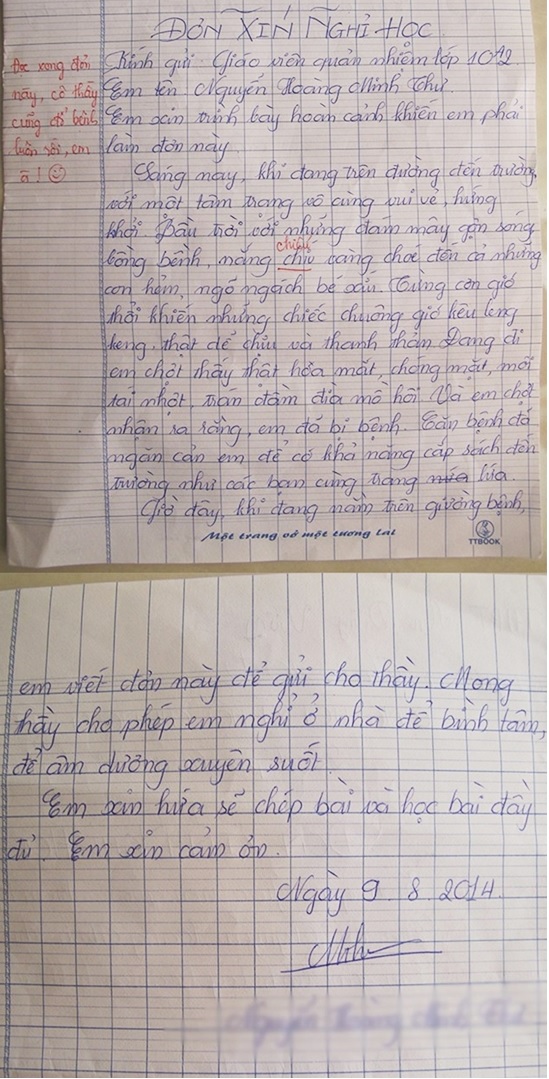 ĐƠN XIN NGHỈ HỌC
Kính gửi: Giáo viên quản nhiệm lớp 10A2
Em tên: Nguyễn Hoàng Minh Thư.
Em xin trình bày hoàn cảnh khiến em phải
làm đơn này.
Đọc xong đơn
này, cô thấy
cũng đổ bệnh
luôn rồi, em
ạ! ☺
Sáng nay, khi đang trên đường đến trường
với một tâm trạng vô cùng vui vẻ, hứng
khởi. Bầu trời với những đám mây gợn sóng
bồng bềnh, nắng chíu vàng choé đến cả những
chiếu
con hẻm, ngõ ngách bé xíu. Từng cơn gió
thổi khiến những chiếc chuông gió kêu leng
keng, thật dễ chịu và thanh thản. Đang đi
em chợt thấy thật hoa mắt, chóng mặt, môi
tái nhợt, trán đầm đìa mồ hôi. Và em chợt
nhận ra rằng, em đã bị bệnh. Căn bệnh đã
ngăn cản em để có khả năng cắp sách đến
trường như các bạn cùng trang lứa.
Giờ đây, khi đang nằm trên giường bệnh,
Một trang vở một tương lai
TTBOOK
em viết đơn này để gửi cho thầy. Mong
thầy cho phép em nghỉ ở nhà để bình tâm,
để âm dương xuyên suốt.
Em xin hứa sẽ chép bài và học bài đầy
đủ. Em xin cảm ơn.
Ngày 9.8.2014.